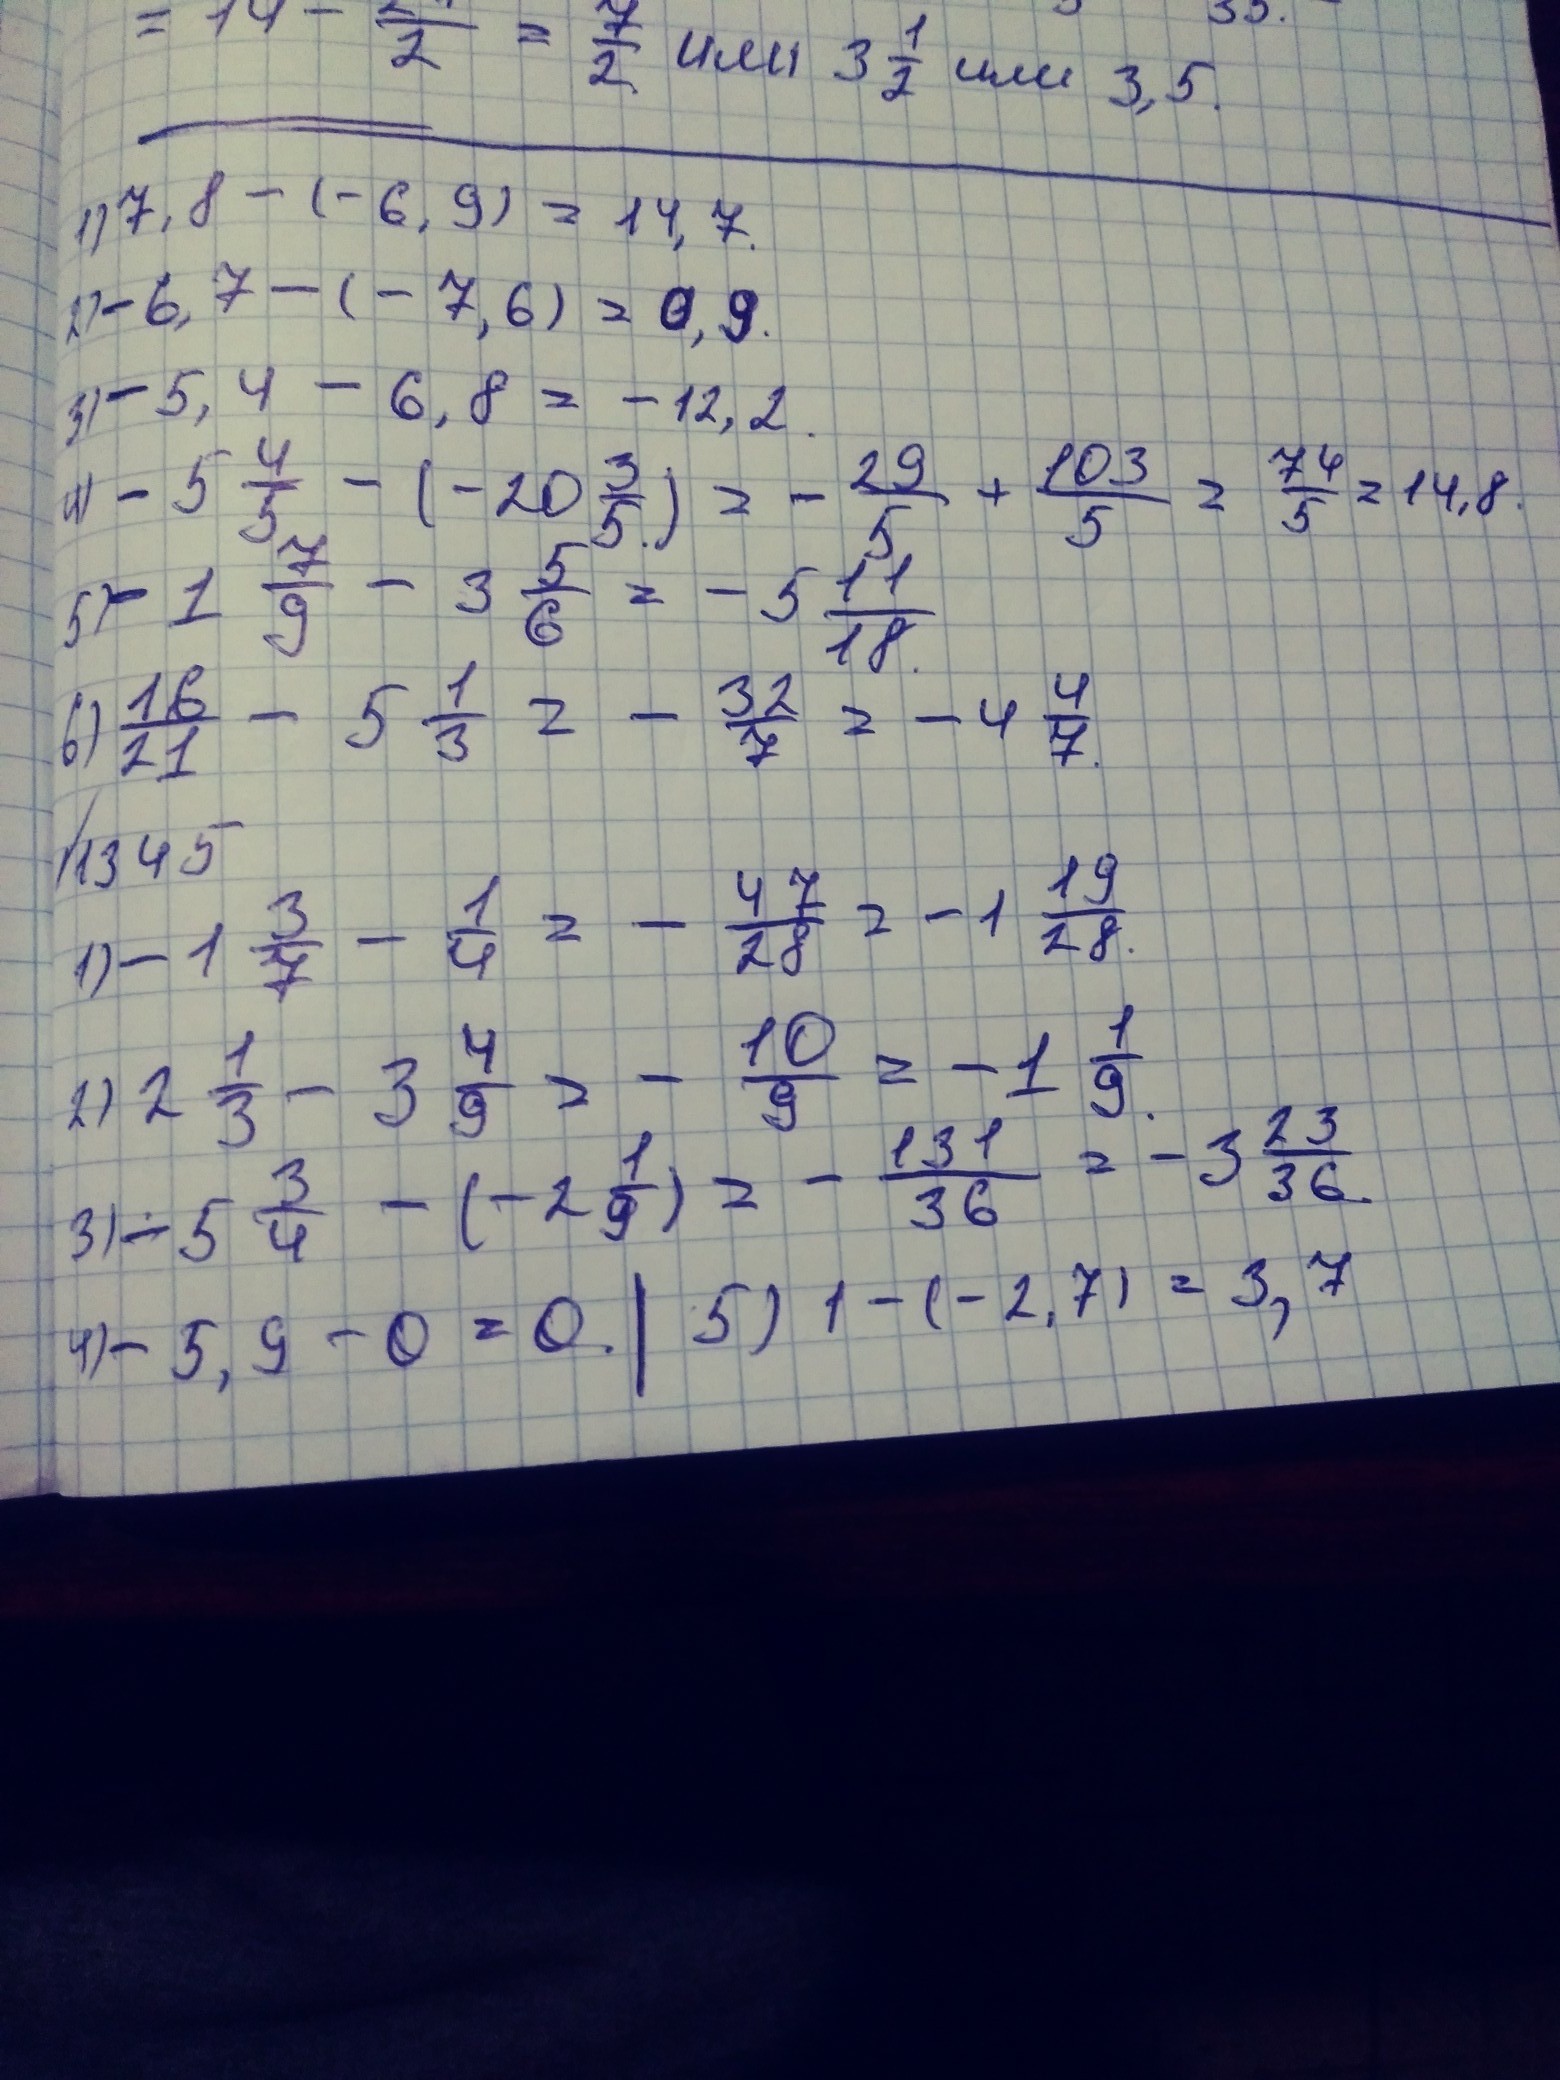 = 14 - 21/2 = 7/2 или 3 1/2 или 3,5.
1) 7,8 - (-6,9) = 14,7.
2) -6,7 - (-7,6) = 0,9.
3) -5,4 - 6,8 = -12,2.
4) -5 4/5 - (-20 3/5) = -29/5 + 103/5 = 74/5 = 14,8.
5) -1 7/9 - 3 5/6 = -5 11/18.
6) 16/21 - 5 1/3 = -32/7 = -4 4/7.
1345
1) -1 3/7 - 1/4 = -47/28 = -1 19/28.
2) 2 1/3 - 3 4/9 = -10/9 = -1 1/9.
3) -5 3/4 - (-2 1/9) = -131/36 = -3 23/36.
4) -5,9 - 0 = 0. | 5) 1 - (-2,7) = 3,7